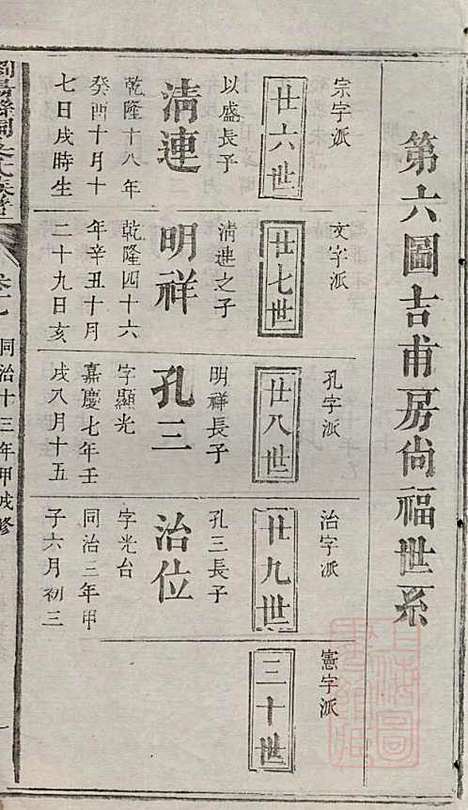 第六圖吉甫房尙福世系
宗字派
廿六世
以盛長子
淸連
乾隆十八年
癸酉十月十
七日戌時生
文字派
廿七世
淸連之子
明祥
乾隆四十六
年辛丑十月
二十九日亥
孔字派
廿八世
明祥長子
孔三
字顯光
嘉慶七年壬
戌八月十五
治字派
廿九世
孔三長子
治位
字光台
同治三年甲
子六月初三
憲字派
三十世
同治十三年甲戌修